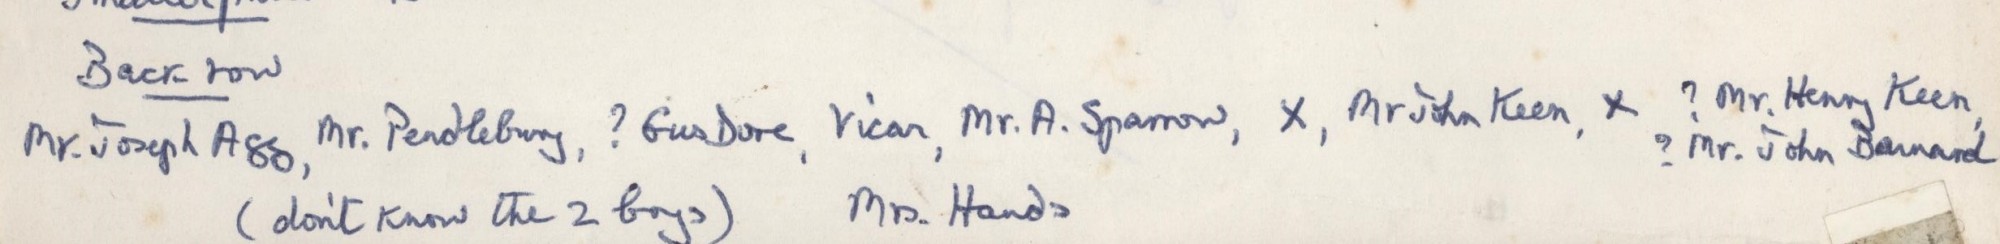 Back row
Mr. Joseph Agg, Mr. Pendlebury, ? Gus Dore, Vicar, Mr. A. Sparrow, X, Mr John Keen, X ? Mr. Henry Keen,
? Mr. John Barnard
(don't know the 2 boys) Mrs. Hands